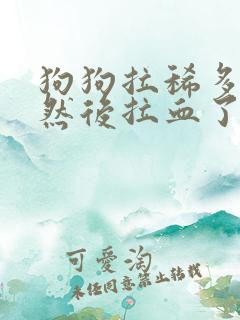 狗狗拉稀多
然後拉血了
可愛淘
未任同意禁止转载